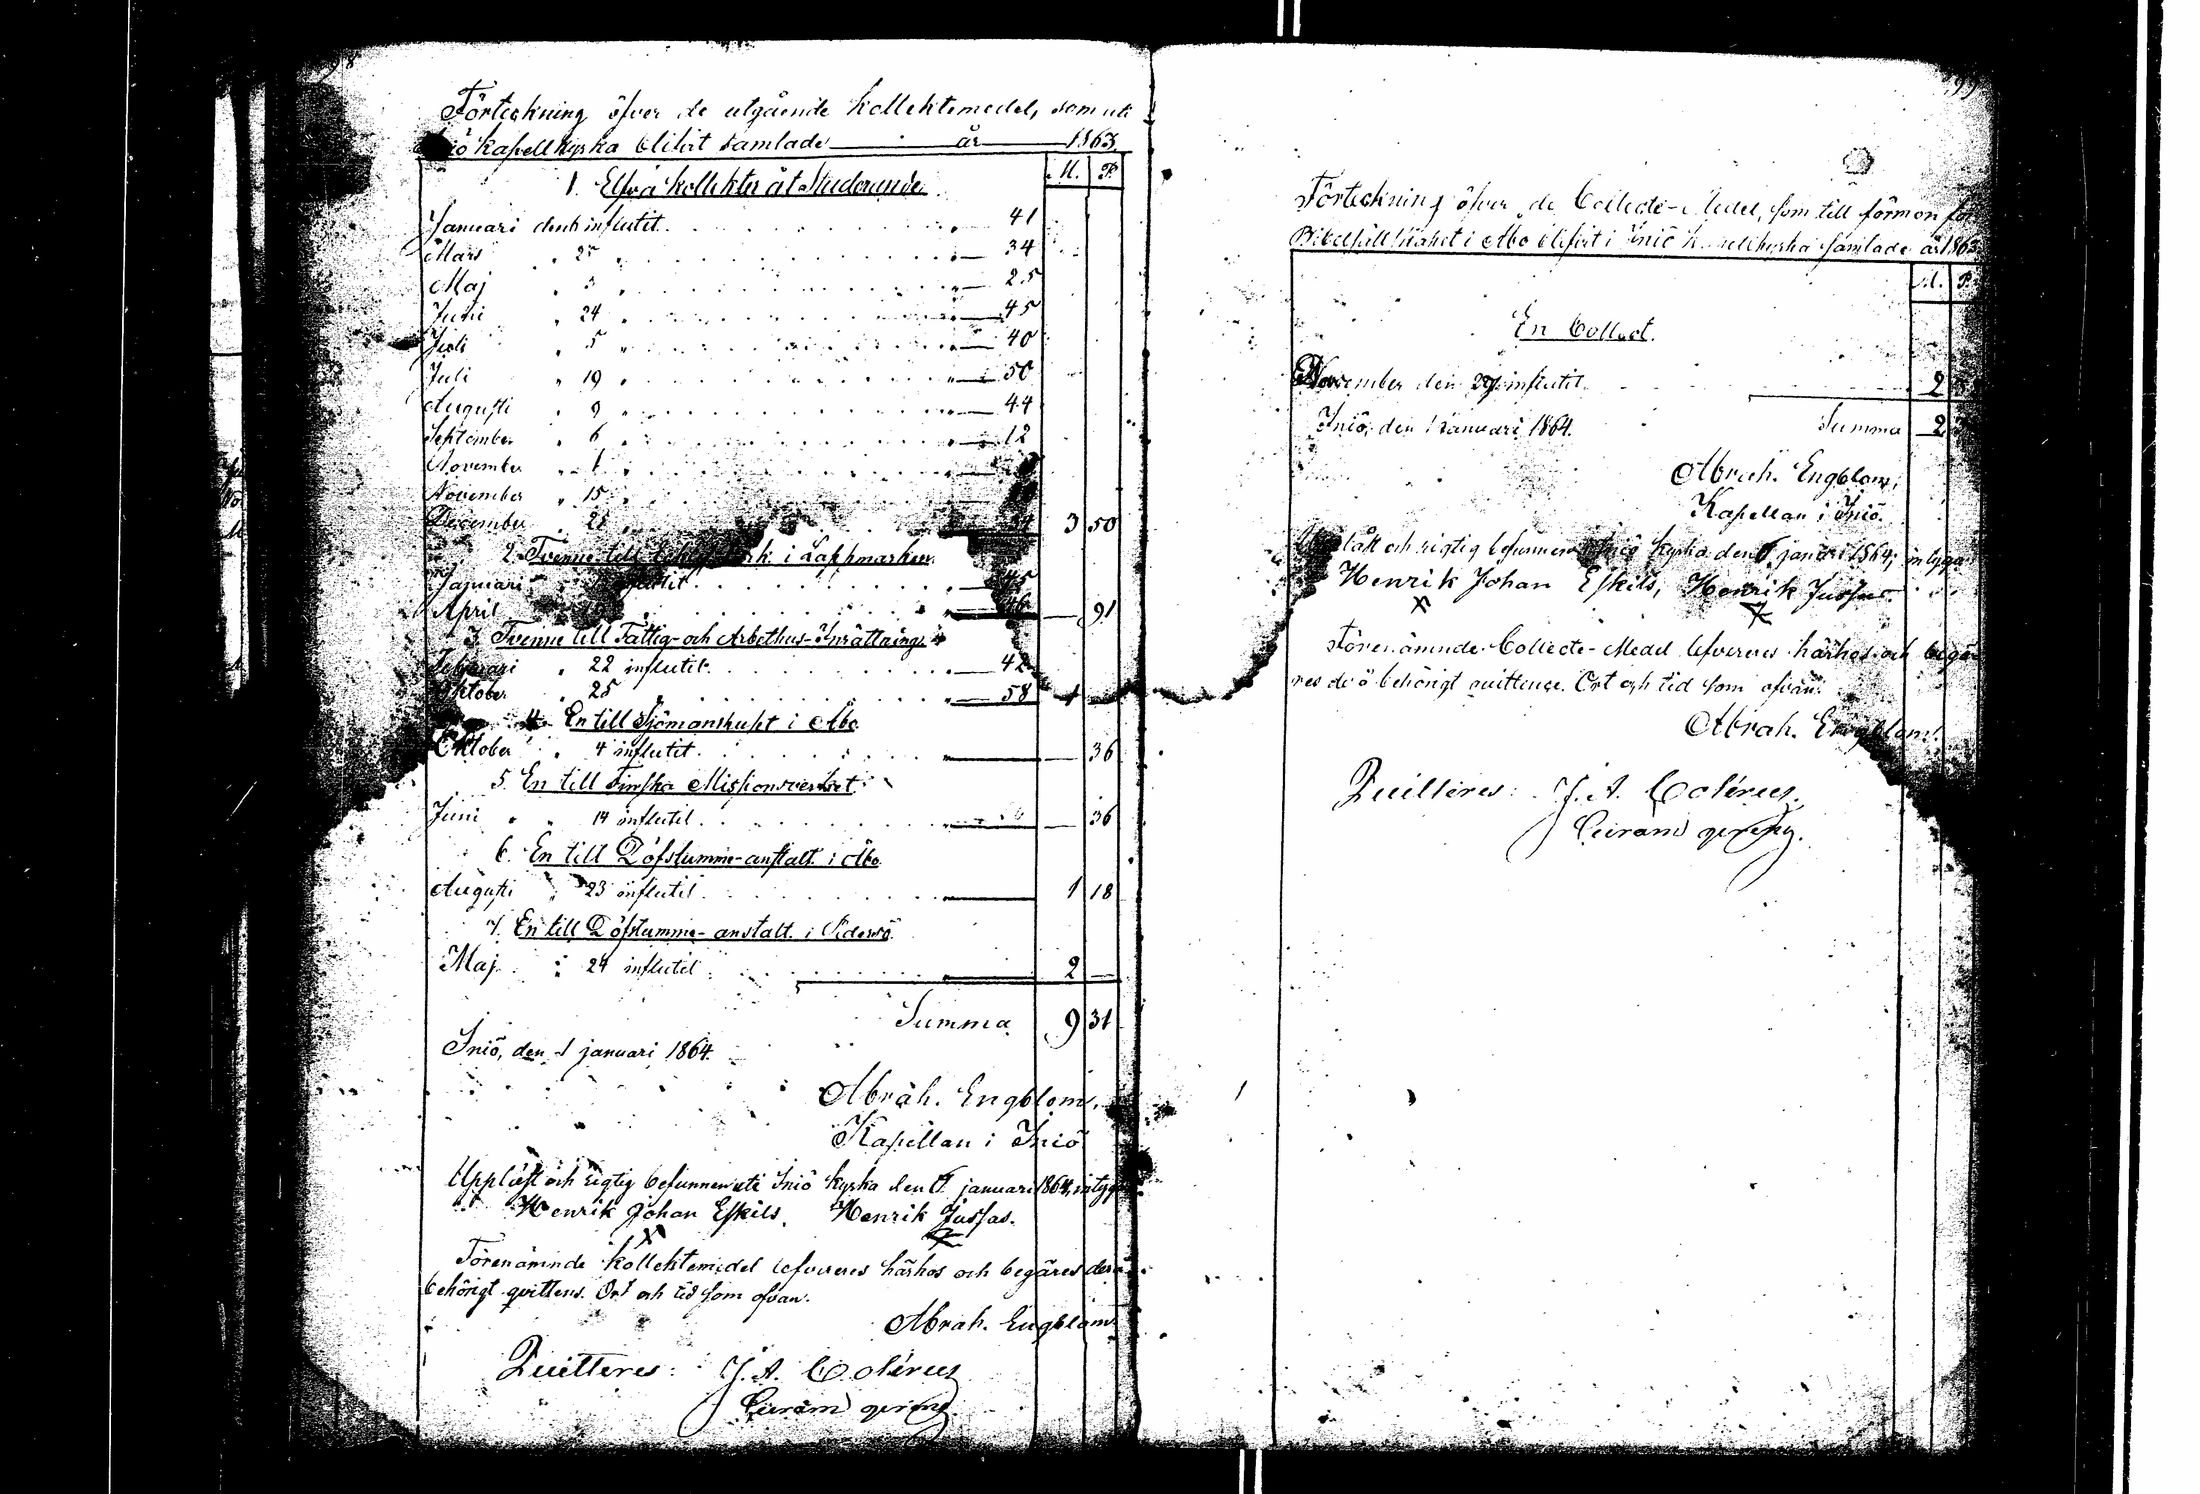 98
Förteckning öfver de utgående kollektemedel, som uti
Iniö kapellkyrka blifvit samlade år 1863.
M. P.
1. Elfva kollekter åt Studerande.
Januari den 6 influtit. 41
Mars " 25 " 34
Maj " 3 " 25
Juni " 24 " 45
Juli " 5 " 40
Juli " 19 " 50
Augusti " 9 " 44
September " 6 " 12
November " 1 "
November " 15 "
December " 28 " 3 50
2. Tvenne till i Lappmarken.
Januari influtit 45
April 91
3. Tvenne till Fattig- och Arbethus-Inrättning.
Februari " 22 influtit. 42
Oktober " 25 " 58 1
4. En till Sjömanshuset i Åbo
Oktober " 4 influtit. 36
5. En till Finska Missionsverket
Juni " " 14 influtit. 36
6. En till Döfstumme-anstalt i Åbo.
Augusti " 23 influtit. 1 18
7. En till Döfstumme-anstalt i Pedersö.
Maj " 24 influtit. 2 —
Summa 9 31
Iniö, den 1 januari 1864.
Abrah. Engblom.
Kapellan i Iniö
Uppläst och rigtig befunnen uti Iniö kyrka den 6 januari 1864, intyga
Henrik Johan Eskils, Henrik Jussas.
Förenämnde kollektemedel lefvereres härhos och begäres derå
behörigt qvittens. Ort och tid som ofvan.
Abrah. Engblom
Quitteres: J. A. Colérus
99
Förteckning öfver de Collecte-Medel, som till förmon för
Bibelsällskapet i Åbo blifvit i Iniö Kapellkyrka samlade år 1863
M. P.
En Collect.
November den 29 influtit. 2
Iniö, den 1 januari 1864. Summa 2
Abrah. Engblom,
Kapellan i Iniö.
Uppläst och rigtig befunnen Iniö kyrka den 6 januari 1864, intyga
Henrik Johan Eskils, Henrik Jussas.
Förenämnde Collecte-Medel lefvereres härhos och begä-
res derå behörigt quittence. Ort och tid som ofvan.
Abrah. Engblom.
Quitteres: J. A. Colérus.